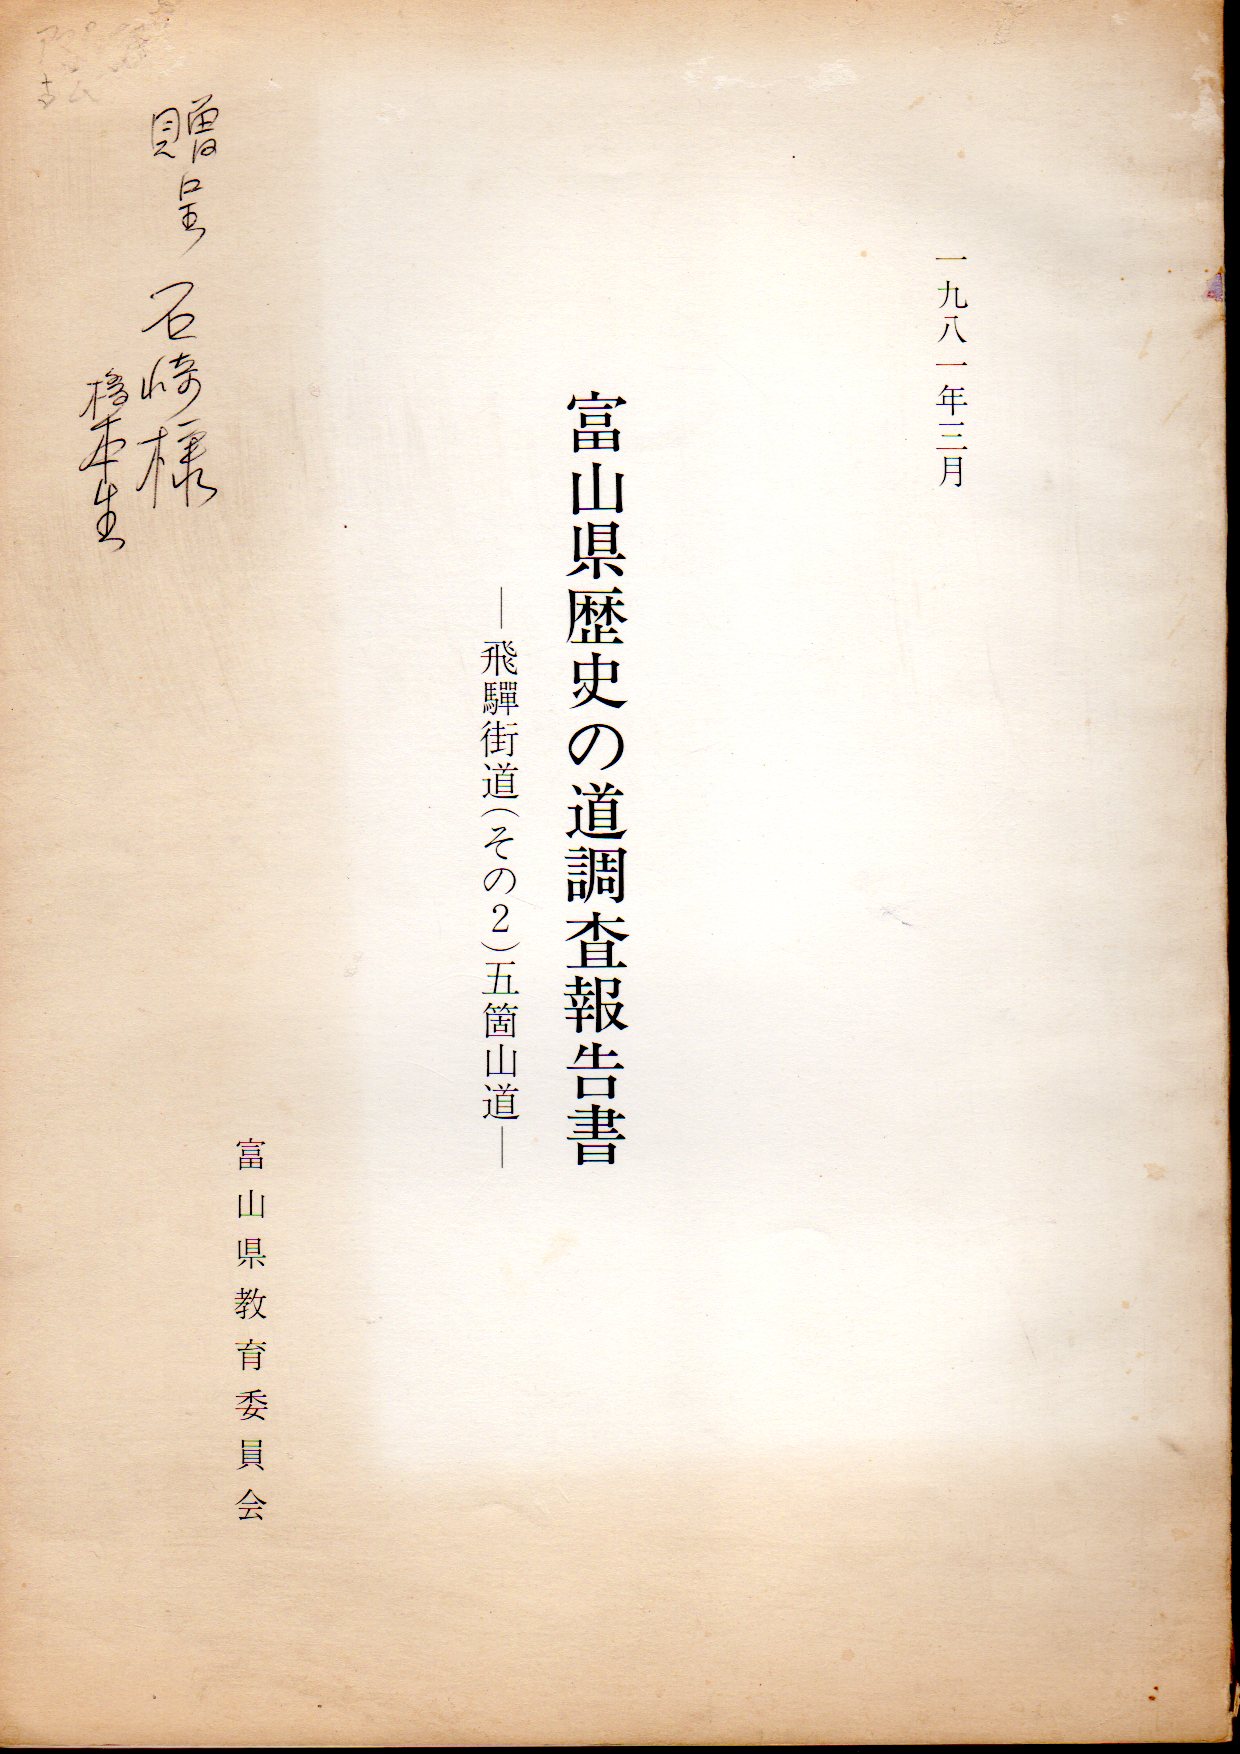 一九八一年三月
富山県歴史の道調査報告書
―飛驒街道(その2)五箇山道―
富山県教育委員会
贈呈 石崎様
橋本生